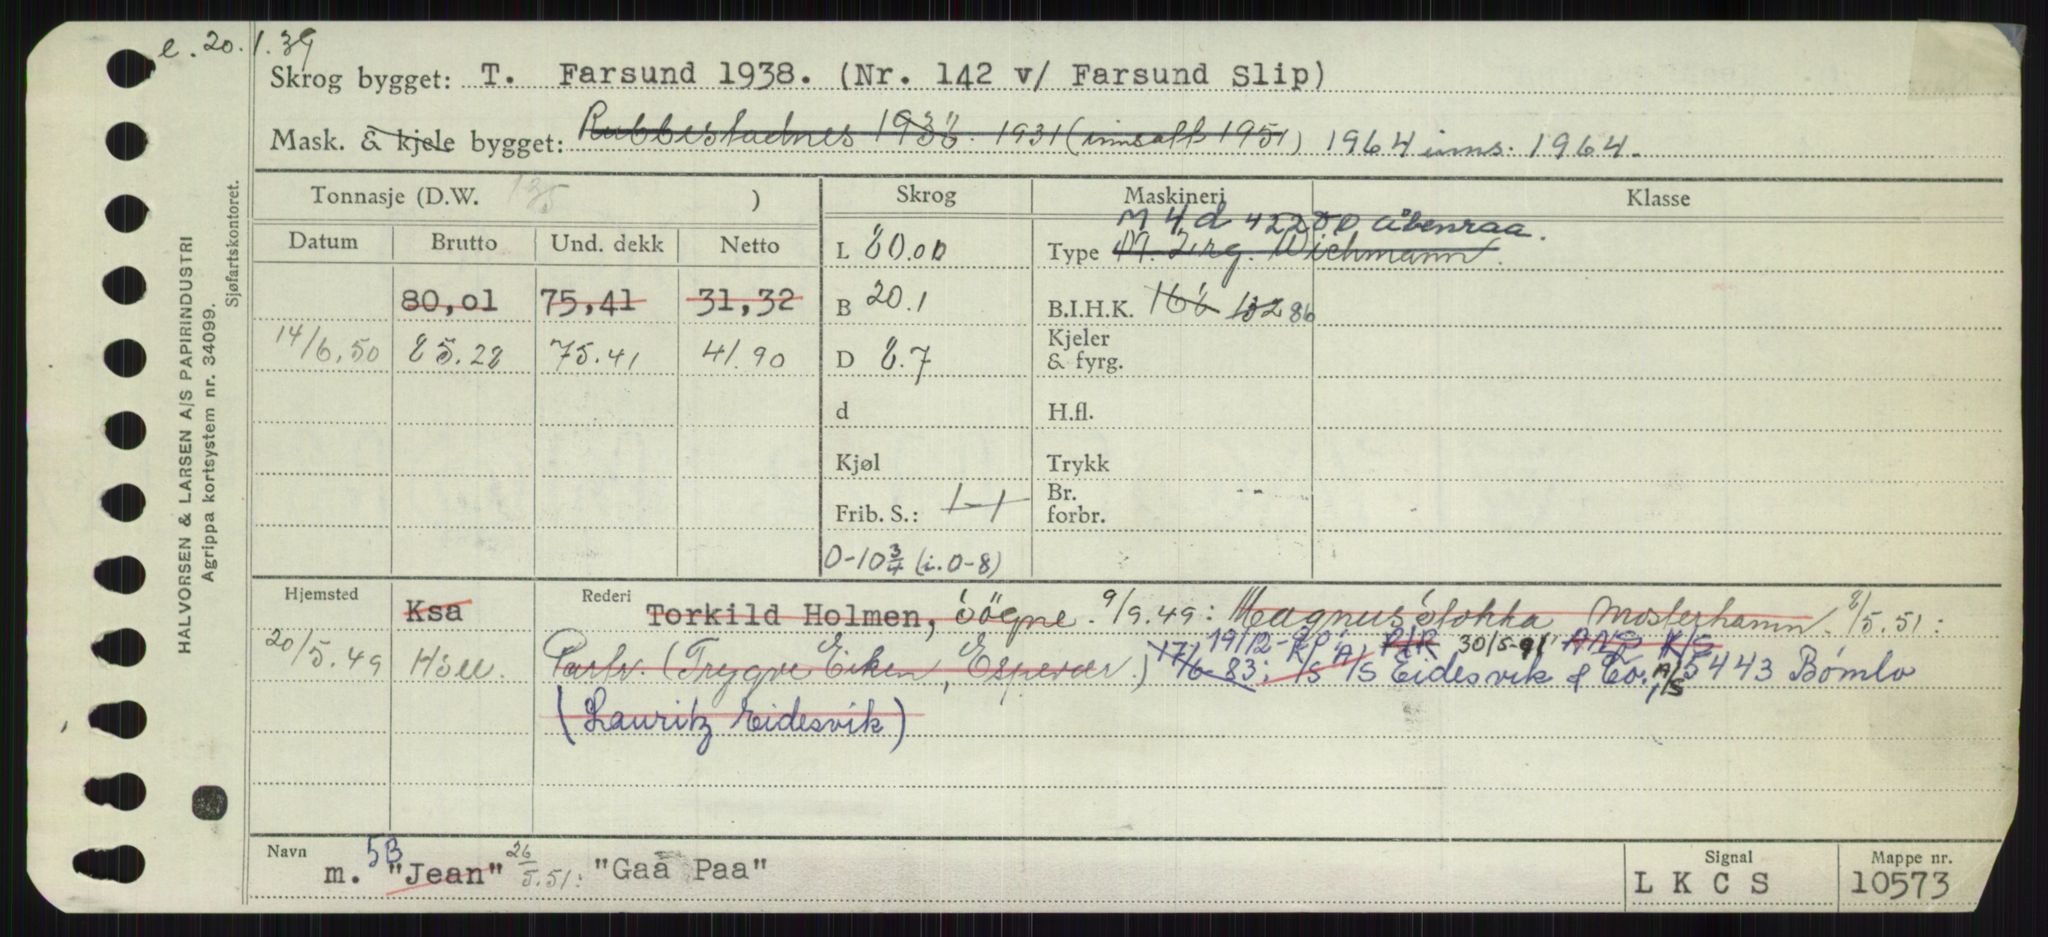 e. 20.1.39
Skrog bygget: T. Farsund 1938. (Nr. 142 v/ Farsund Slip)
Mask. & kjele bygget: Rubbestadnes 1938. 1931 (innsatt 1951) 1964 inns. 1964.
Tonnasje (D.W. 135 )
Skrog
Maskineri
Klasse
Datum Brutto Und. dekk Netto
80,01 75,41 31,32
14/6.50 85.28 75.41 41.90
L 80.00
B 20.1
D 8.7
d
Kjøl
Frib. S.: 1-1
0-10 3/4 (i. 0-8)
M 4 d 42200 Åbenraa.
Type M. 2rg. Wichmann.
B.I.H.K. 166 132 86
Kjeler
& fyrg.
H.fl.
Trykk
Br.
forbr.
Hjemsted Ksa
Rederi Torkild Holmen, Søgne. 9/9.49: Magnus Stokka Mosterhamn. 8/5.51:
19/12-90: P/R 30/5-91
20/5.49 Hsll. Partr. (Trygve Eiken, Espevær.) 17/6-83: K/S A/S Eidesvik & Co. A/S, 5443 Bømlo
(Lauritz Eidesvik)
Navn
5B
m. "Jean" 26/5.51: "Gaa Paa"
Signal
L K C S
Mappe nr.
10573
HALVORSEN & LARSEN A/S PAPIRINDUSTRI
Agrippa kortsystem nr. 34099.
Sjøfartskontoret.